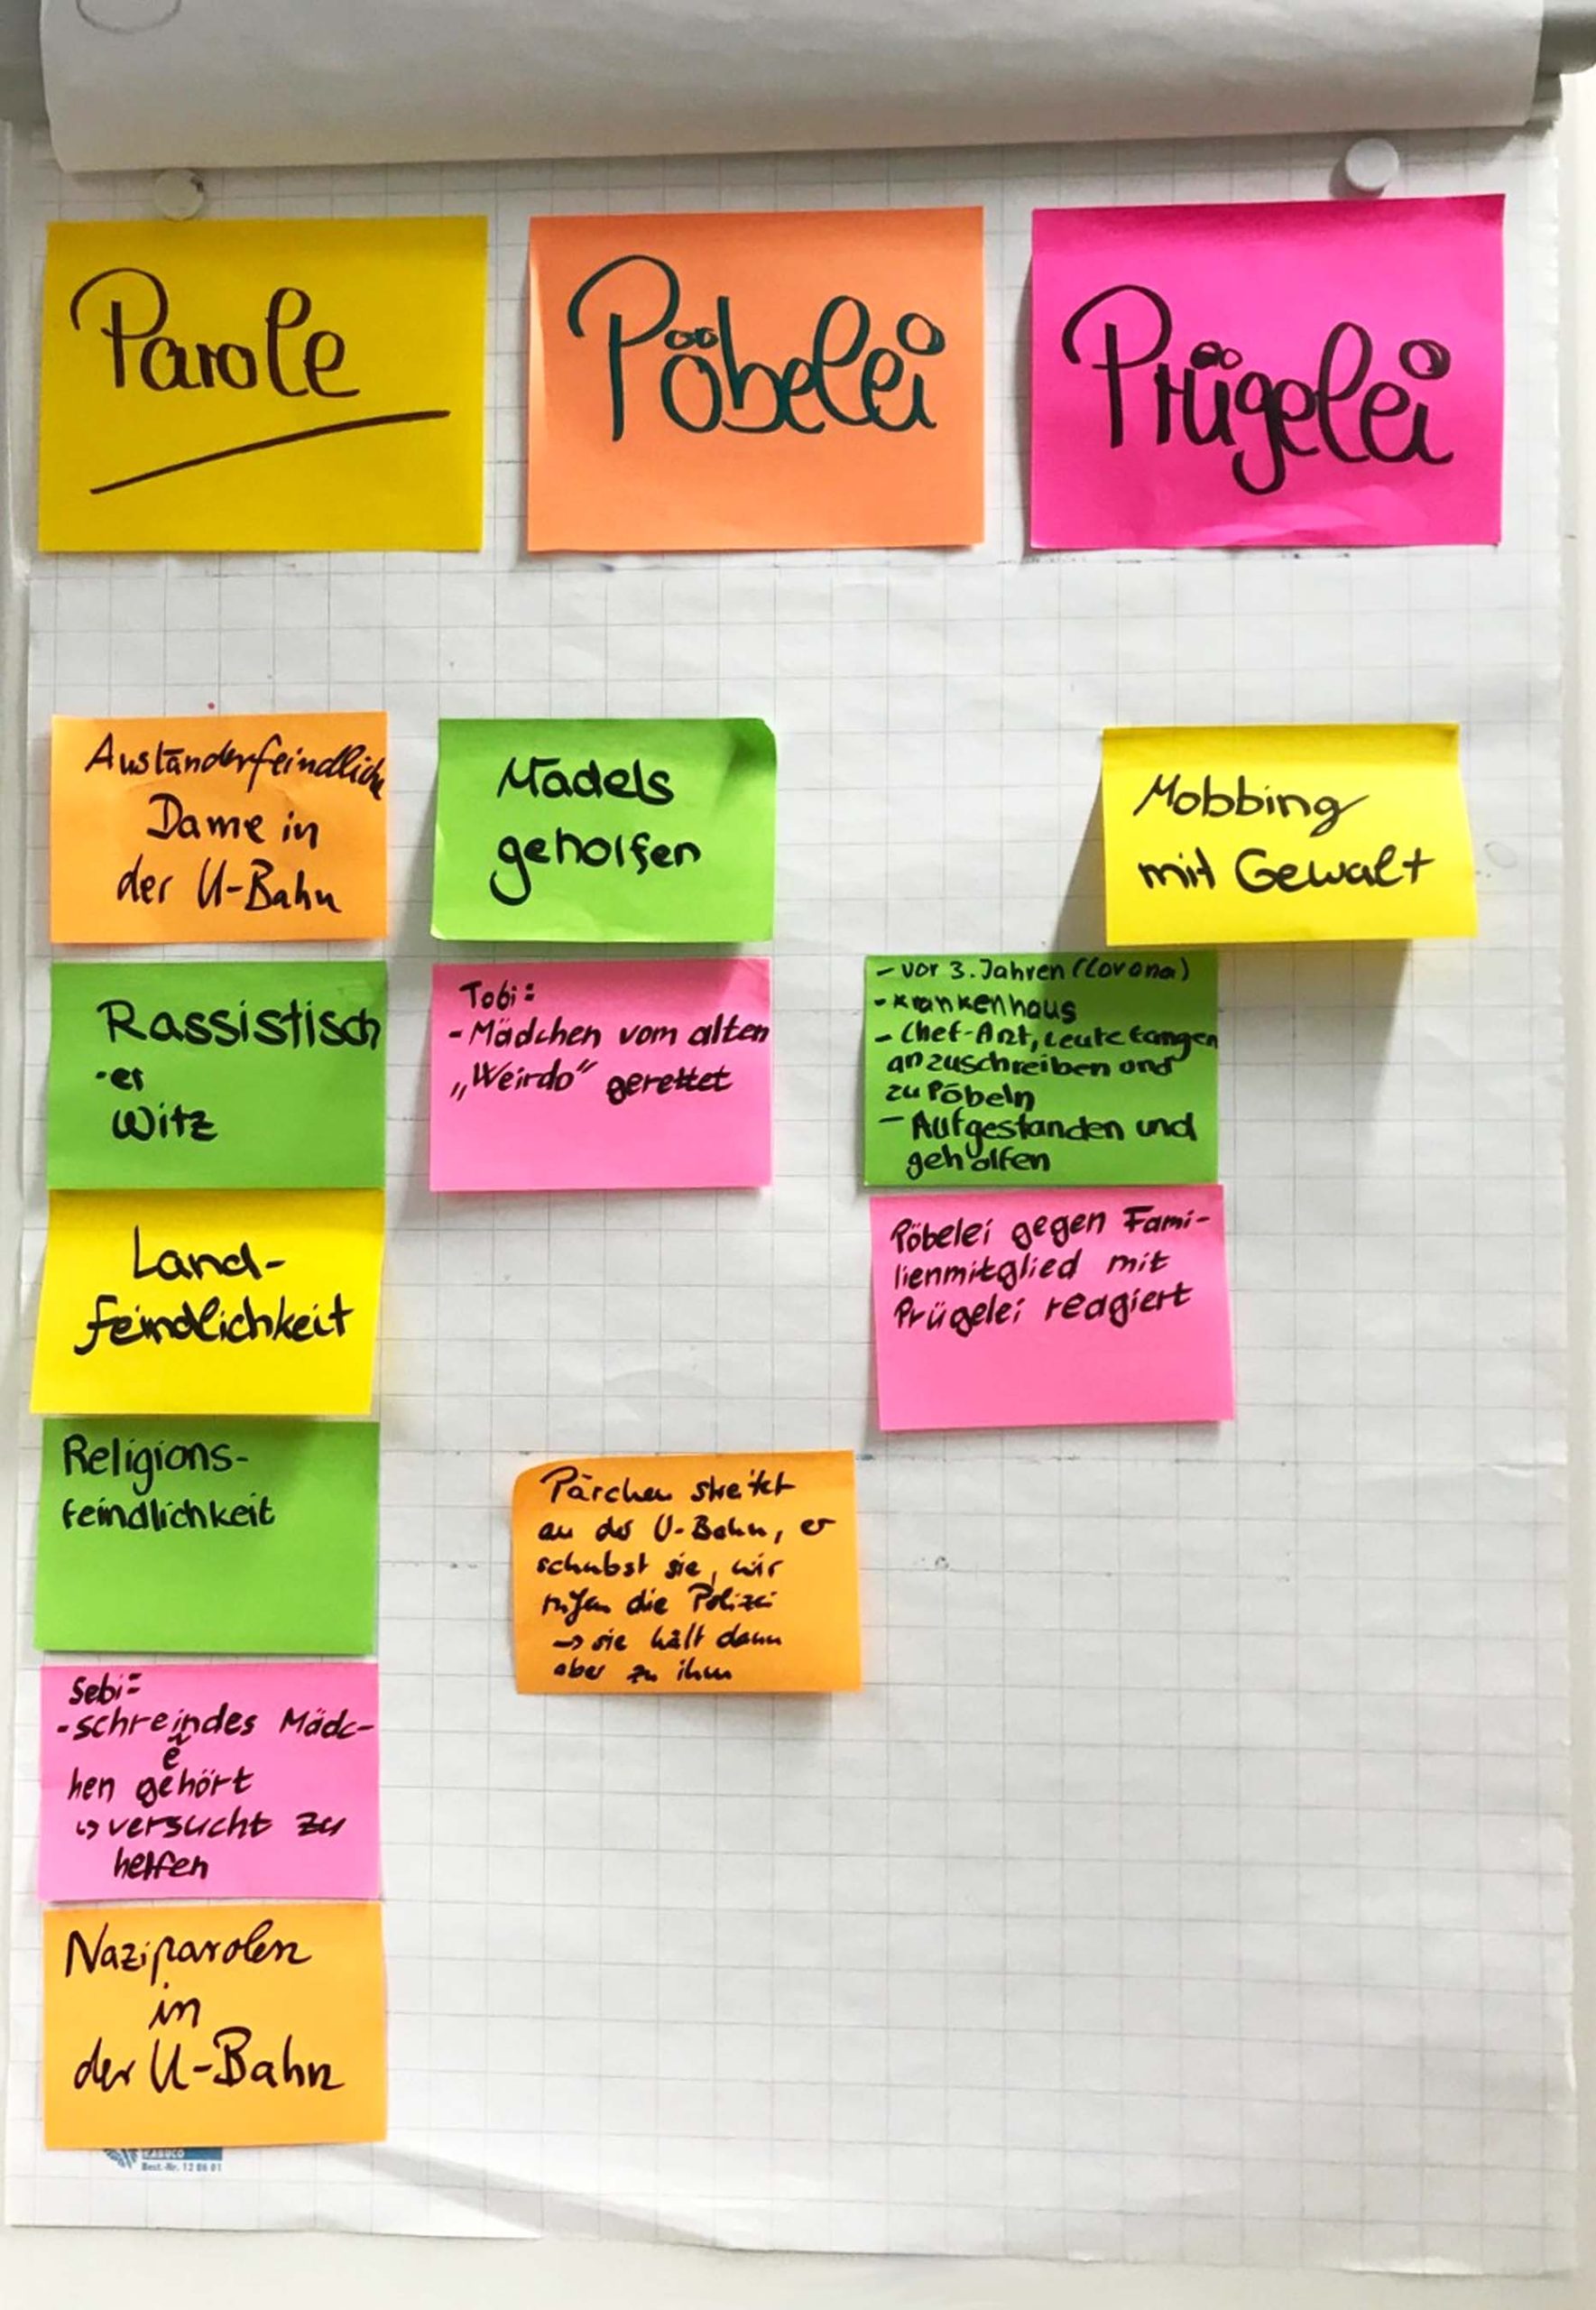 Parole
Pöbelei
Prügelei
Ausländerfeindliche
Dame in
der U-Bahn
Rassistisch
-er
Witz
Land-
feindlichkeit
Religions-
feindlichkeit
Sebi:
-schreindes Mädc-
e
hen gehört
↳ versucht zu
helfen
Naziparolen
in
der U-Bahn
Mädels
geholfen
Tobi:
- Mädchen vom alten
„Weirdo" gerettet
Pärchen streitet
an der U-Bahn, er
schubst sie, wir
rufen die Polizei
→ sie hält dann
aber zu ihm
Mobbing
mit Gewalt
- vor 3. Jahren (Corona)
- Krankenhaus
- Chef-Arzt, Leute fangen
anzuschreiben und
zu Pöbeln
- Aufgestanden und
geholfen
Pöbelei gegen Fami-
lienmitglied mit
Prügelei reagiert
Best.-Nr. 12 86 01